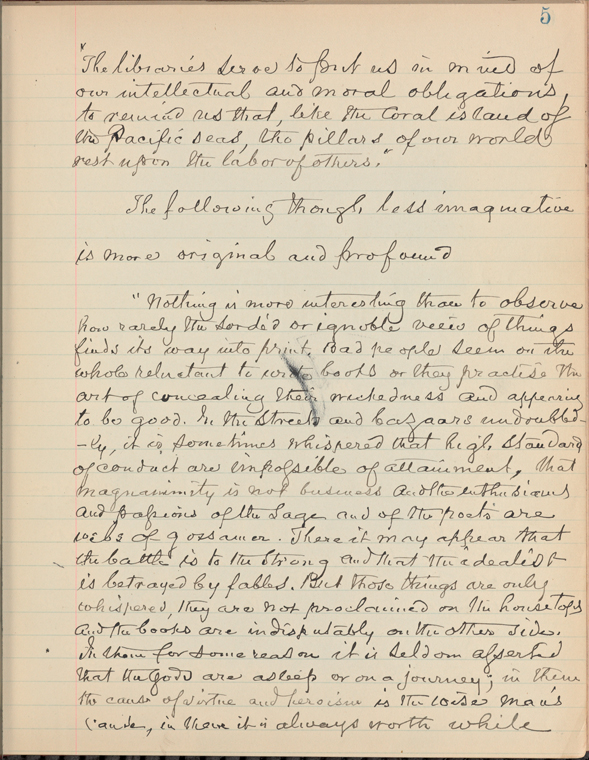 5
"The libraries serve to put us in mind of
our intellectual and moral obligations,
to remind us that, like the Coral island of
the Pacific seas, the pillars of our world
rest upon the labor of others."
The following though less imaginative
is more original and profound
"Nothing is more interesting than to observe
how rarely the sordid or ignoble view of things
finds its way into print. Bad people seem on the
whole reluctant to write books or they practise the
art of concealing their wickedness and appearing
to be good. In the streets and bazaars undoubted-
-ly, it is sometimes whispered that high standard
of conduct are impossible of attainment, that
magnanimity is not business and the enthusiasms
and passions of the sage and of the poets are
webs of gossamer. There it may appear that
the battle is to the strong and that the idealist
is betrayed by fables. But those things are only
whispered, they are not proclaimed on the housetops
and the books are indisputably on the other side.
In them for some reason it is seldom asserted
that the gods are asleep or on a journey; in them
the cause of virtue and heroism is the wise man's
cause, in them it is always worth while